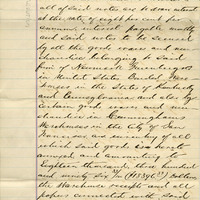 all of said notes are to draw interest
at the rate of eight per cent per
annum, interest payable
and said note to be secured
by all the goods wares and mer
chandise belonging to said
firm of
in United States Bonded Ware
houses in the States of Kentucky
and Pennsylvania and also by
certain goods wares and mer
chandise in Cunninghams
Warehouses in the City of San
Francisco an inventory of all
which said goods are hereto
annexed and amounting to
Eighteen thousand three hundred
and ninety six
the Warehouse receipts and all
papers connected with said